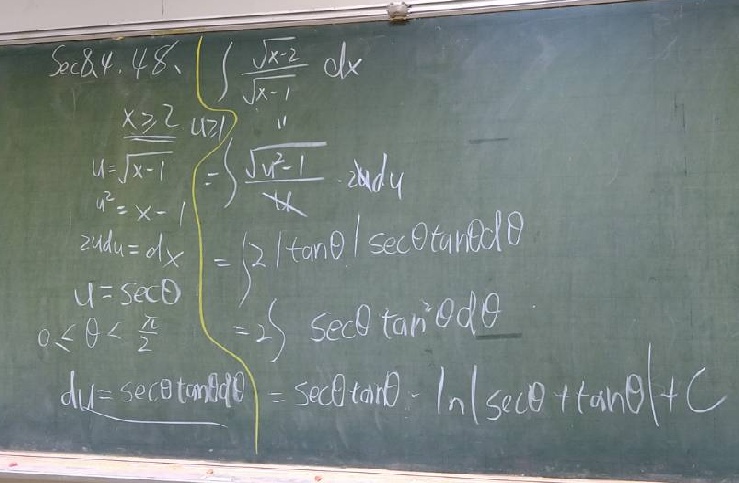 Sec8.4.48.
x ≥ 2 u≥1
u = √(x-1)
u² = x - 1
2udu = dx
u = secθ
0 ≤ θ < π/2
du = secθtanθdθ
∫ √(x-2)/√(x-1) dx
=
= ∫ √(u²-1)/u · 2udu
= ∫ 2|tanθ| secθtanθdθ
= 2∫ secθ tan²θdθ
= secθtanθ - ln|secθ+tanθ|+C